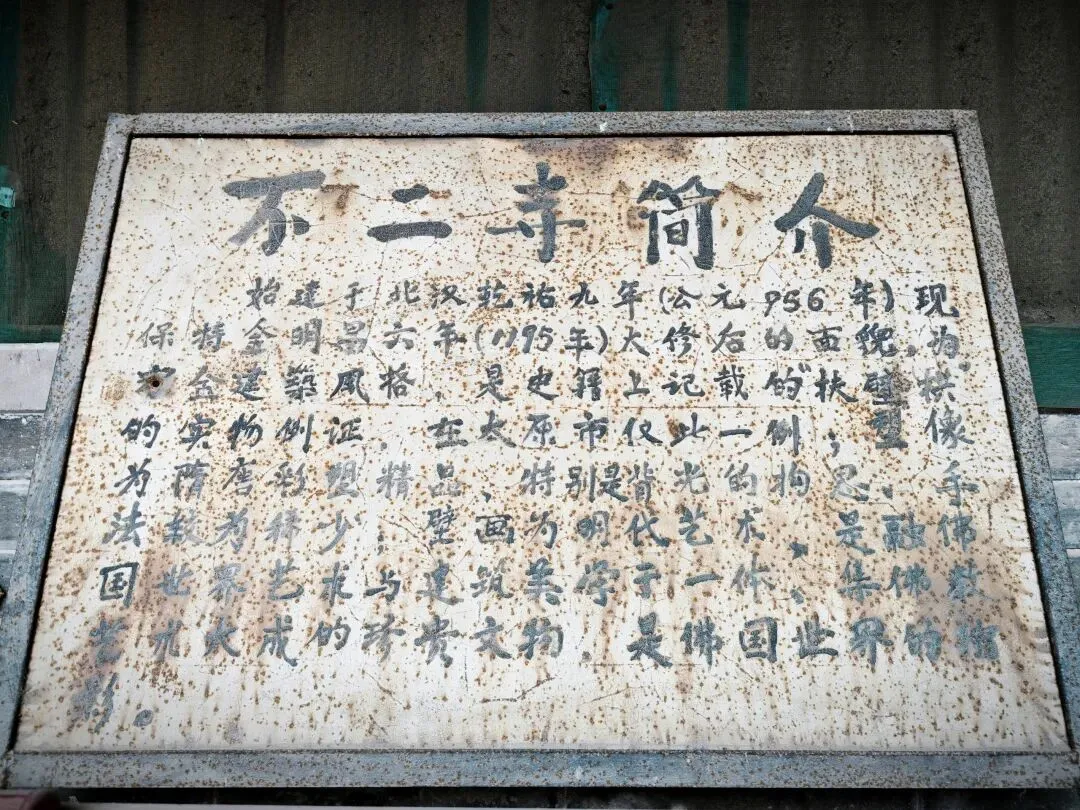 不二寺简介
始建于北汉乾祐九年(公元956年)现
保特金明昌六年(1195年)大修后的面貌,为
宋金建築风格,是史籍上记载的"扶壁拱
的实物例证,在太原市仅此一例;塑像
为隋唐彩塑精品,特别是背光的构思、手
法较为稀少;壁画为明代艺术,是融佛
国世界艺术与建筑美学于一体、集佛教
艺术大成的珍贵文物,是佛国世界的缩
影。